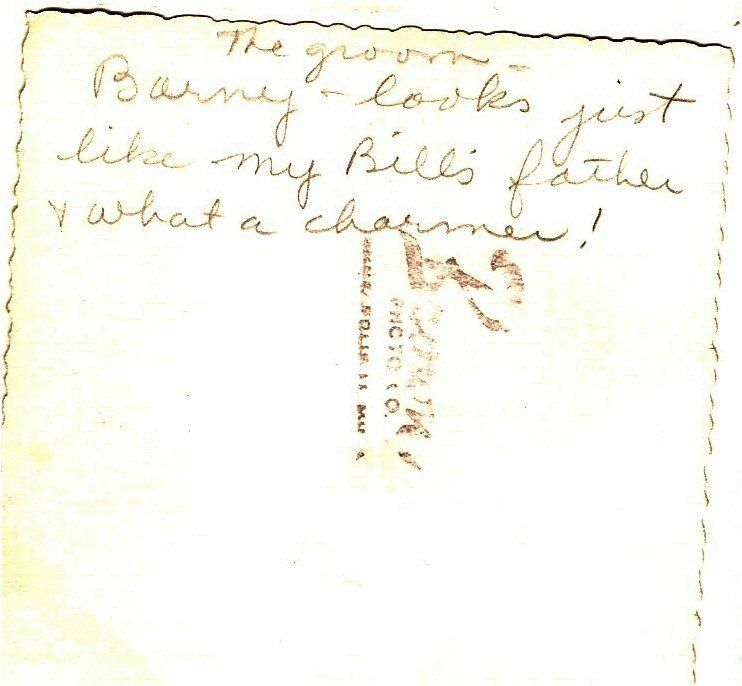 The groom -
Barney - looks just
like my Bill's father
& what a charmer!
PHOTO CO.